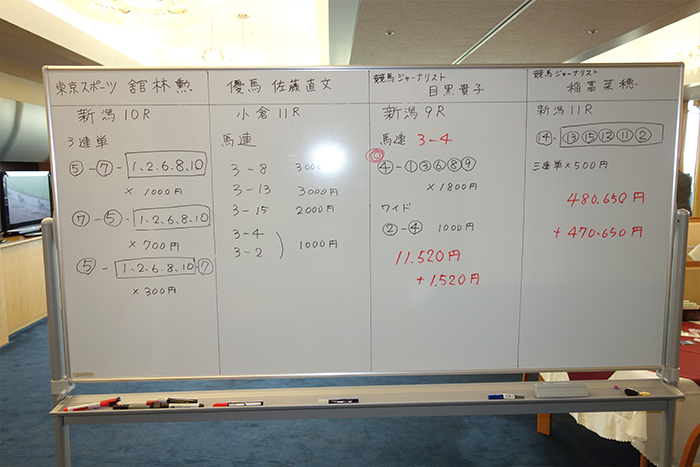 東京スポーツ 舘林勲
新潟10R
3連単
⑤-⑦-1、2、6、8、10
×1000円
⑦-⑤-1、2、6、8、10
×700円
⑤-1、2、6、8、10-⑦
×300円
優馬 佐藤直文
小倉11R
馬連
3-8 3000円
3-13 3000円
3-15 2000円
3-4
3-2 ) 1000円
競馬ジャーナリスト
目黒貴子
新潟9R
馬連 3-4
④-①③⑥⑧⑨
×1800円
ワイド
②-④ 1000円
11.520円
+1.520円
競馬ジャーナリスト
稲富菜穂
新潟11R
⑭-⑬⑮⑫⑪②
三連単×500円
480,650円
+470,650円